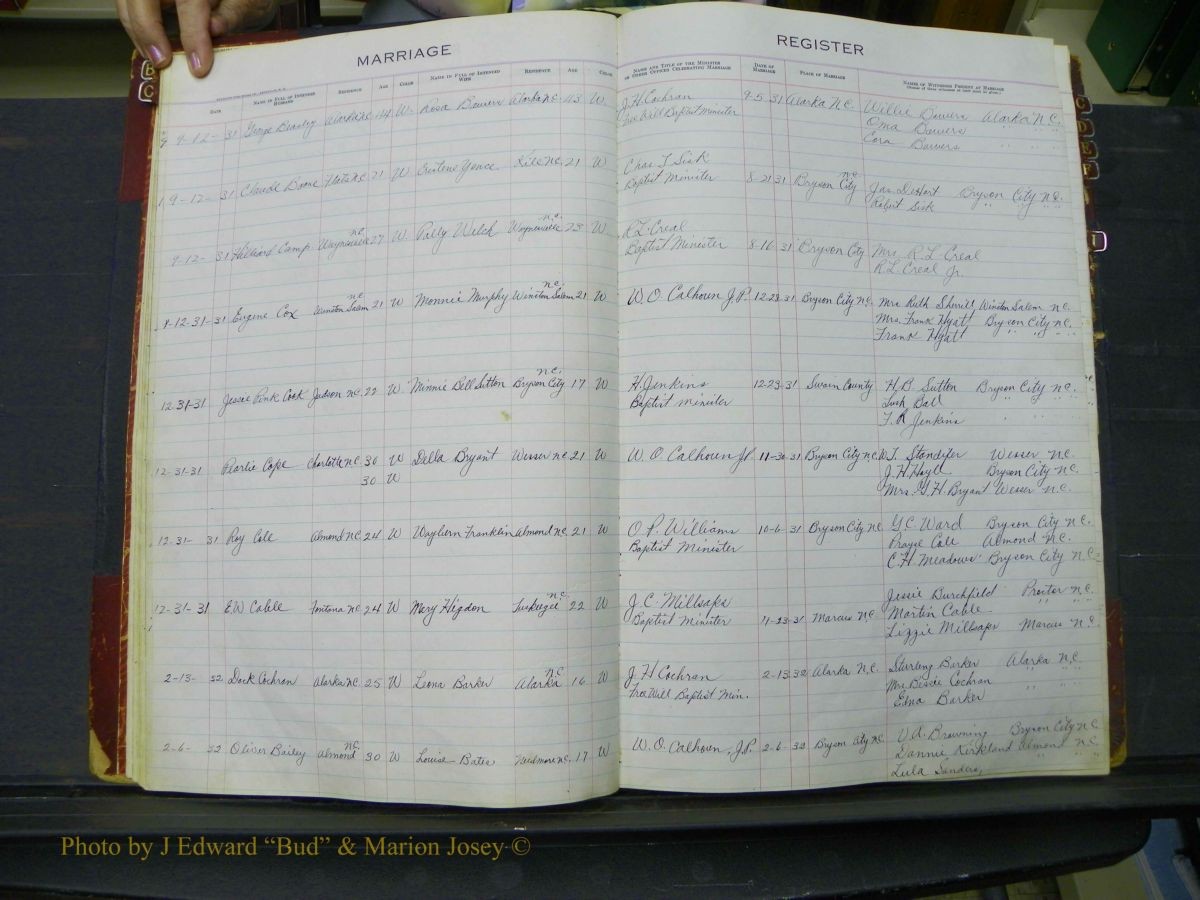 MARRIAGE
REGISTER
DATE NAME IN FULL OF INTENDED HUSBAND RESIDENCE AGE COLOR NAME IN FULL OF INTENDED WIFE RESIDENCE AGE COLOR NAME AND TITLE OF THE MINISTER OR OTHER OFFICER CELEBRATING MARRIAGE DATE OF MARRIAGE PLACE OF MARRIAGE NAMES OF WITNESSES PRESENT AT MARRIAGE
9-12-31 George Beasley Alarka N.C. 44 W. Rosa Bowers Alarka N.C. 43 W. J.H. Cochran 9-5 31 Alarka N.C. Willie Bowers Alarka N.C.
Free Will Baptist Minister Oma Bowers " " "
Cora Bowers " " "
9-12-31 Claude Boone N.C. 21 W N.C. 21 W Chas. T. Sisk
Baptist Minister 8-21 31 Bryson City N.C. Jas. DeHart Bryson City N.C.
Robert Sisk " " "
9-12-31 Hilliard Camp Waynesville N.C. 27 W. Polly Welch Waynesville N.C. 23 W. R.L. Creal
Baptist Minister 8-16 31 Bryson City Mrs. R.L. Creal
R.L. Creal Jr.
1-12-31-31 Eugene Cox Winston Salem N.C. 21 W Monnie Murphy Winston Salem N.C. 21 W. W.O. Calhoun J.P. 12-23-31 Bryson City N.C. Mrs Ruth Sherrill Winston Salem N.C.
Mrs. Frank Hyatt Bryson City N.C.
Frank Hyatt " " "
12-31-31 Jessie Pink Cook Judson N.C. 22 W. Minnie Bell Sutton Bryson City N.C. 17 W H. Jenkins 12-23-31 Swain County H.B. Sutton Bryson City N.C.
Baptist minister Ball " " "
T.R. Jenkins " " "
12-31-31 Cope Charlotte N.C. 30 W Della Bryant Wesser N.C. 21 W W.O. Calhoun J.P. 11-30-31 Bryson City N.C. W.T. Standifer Wesser N.C.
30 W J.H. Hoyle Bryson City N.C.
Mrs. G.H. Bryant Wesser N.C.
12-31- 31 Roy Cole Almond N.C. 24 W Wayburn Franklin Almond N.C. 21 W O.P. Williams 10-6 31 Bryson City N.C. G.C. Ward Bryson City N.C.
Baptist Minister Cole Almond N.C.
C.H. Meadows Bryson City N.C.
12-31-31 E.W. Cable Fontana N.C. 24 W Mary Higdon Tuskeegee N.C. 22 W J.C. Millsaps Jessie Burchfield Proctor N.C.
Baptist Minister 11-23-31 Marcus N.C. Martin Cable " "
Lizzie Millsaps Marcus N.C.
2-13- 32 Dock Cochran Alarka N.C. 25 W Leona Barker Alarka N.C. 16 W J H Cochran 2-13 32 Alarka N.C. Sterling Barker Alarka N.C.
Free Will Baptist Min. Mrs Cochran " "
Edna Barker " "
2-6- 32 Oliver Bailey Almond N.C. 30 W Louise Bates Needmore N.C. 17 W W.O. Calhoun, J.P. 2-6-32 Bryson City N.C. V.A. Browning Bryson City N.C.
Dannie Kirkland Almond N.C.
Lula Sanders " "
B
C
C
D
E
F
I
Photo by J Edward “Bud” & Marion Josey ©